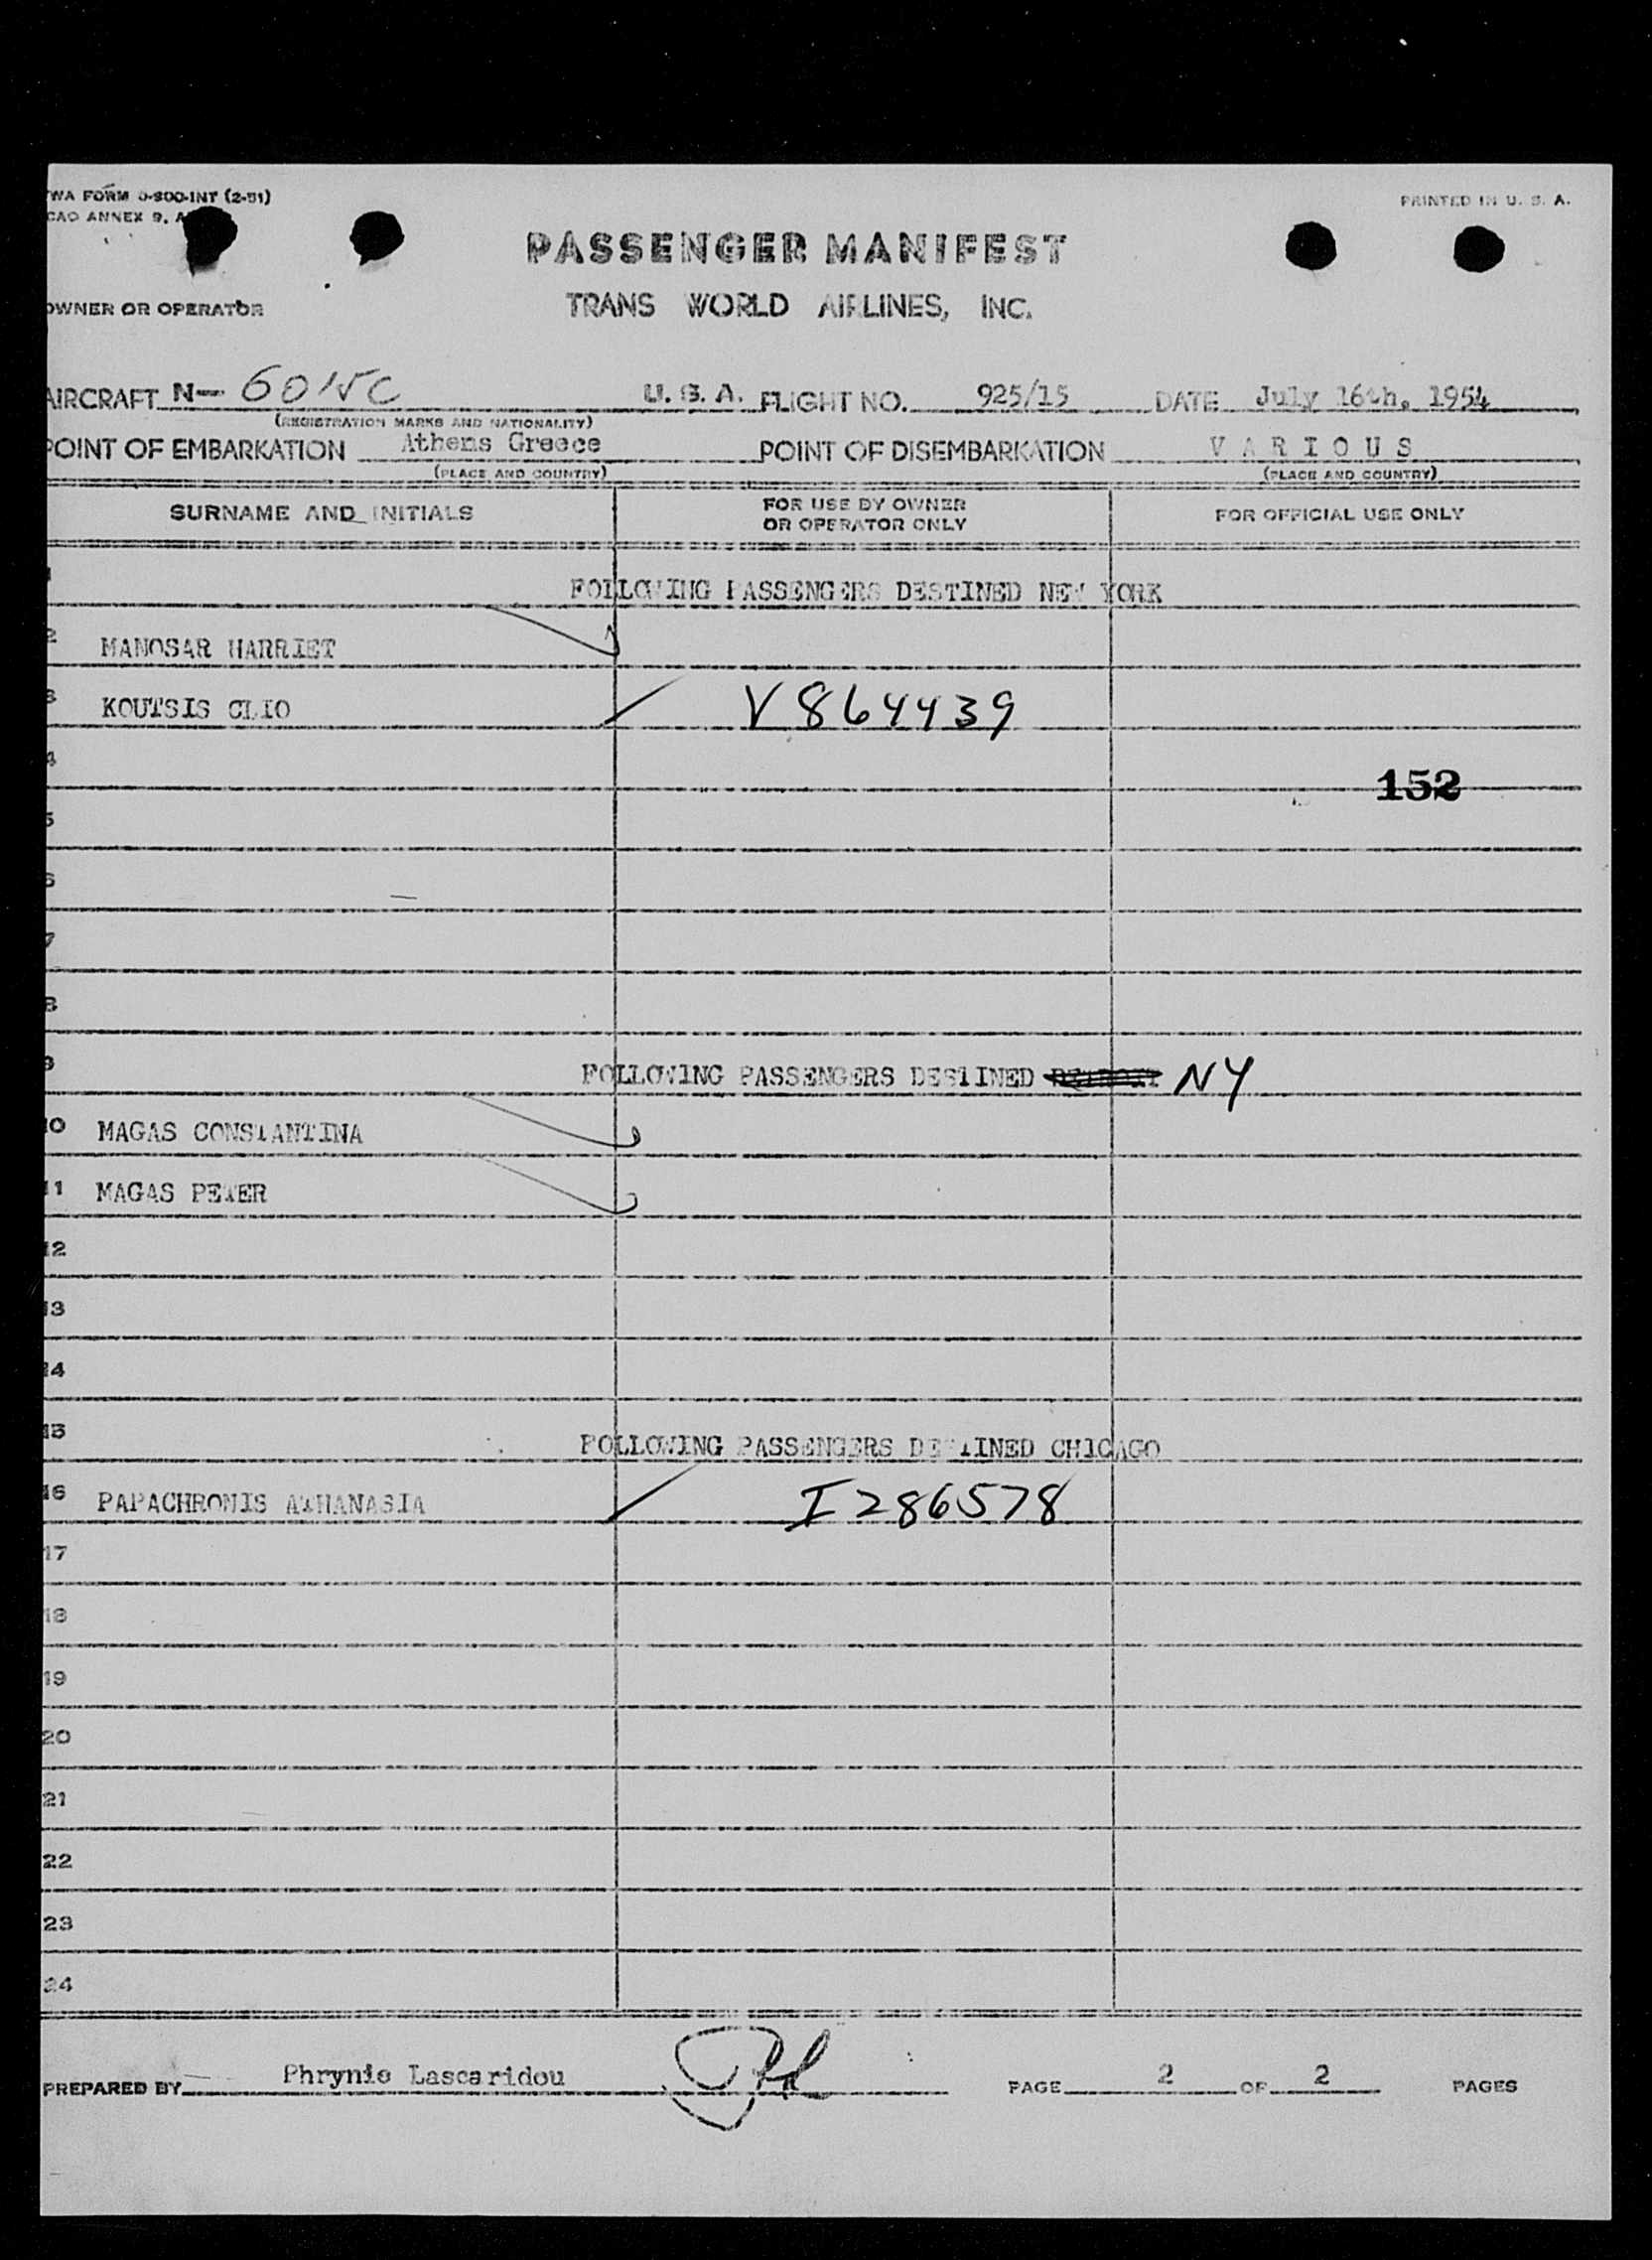 WA FORM O-800-INT (2-51)
PRINTED IN U. S. A.
CAO ANNEX 9,
PASSENGER MANIFEST
OWNER OR OPERATOR
TRANS WORLD AIRLINES, INC.
AIRCRAFT N- 6015C U. S. A. FLIGHT NO. 925/15 DATE July 16th, 1954
(REGISTRATION MARKS AND NATIONALITY)
POINT OF EMBARKATION Athens Greece POINT OF DISEMBARKATION V A R I O U S
(PLACE AND COUNTRY) (PLACE AND COUNTRY)
SURNAME AND INITIALS FOR USE BY OWNER OR OPERATOR ONLY FOR OFFICIAL USE ONLY
1 FOLLOWING PASSENGERS DESTINED NEW YORK
2 MANOSAR HARRIET
3 KOUTSIS CLIO V 864439
4 152
5
6
7
8
9 FOLLOWING PASSENGERS DESTINED NY
10 MAGAS CONSTANTINA
11 MAGAS PETER
12
13
14
15 FOLLOWING PASSENGERS DESTINED CHICAGO
16 PAPACHRONIS ATHANASIA I 286578
17
18
19
20
21
22
23
24
PREPARED BY Phrynie Lascaridou PAGE 2 OF 2 PAGES